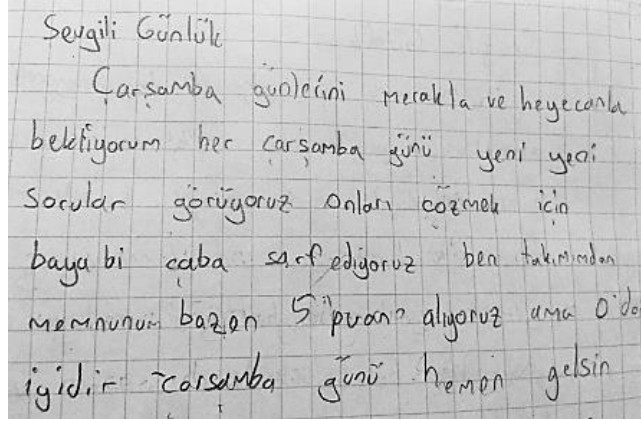 Sevgili Günlük
Çarşamba günlerini merakla ve heyecanla
bekliyorum her çarşamba günü yeni yeni
sorular görüyoruz onları çözmek için
baya bi çaba sarf ediyoruz ben takımımdan
memnunum bazen 5 puan alıyoruz ama o'da
iyidir çarşamba günü hemen gelsin